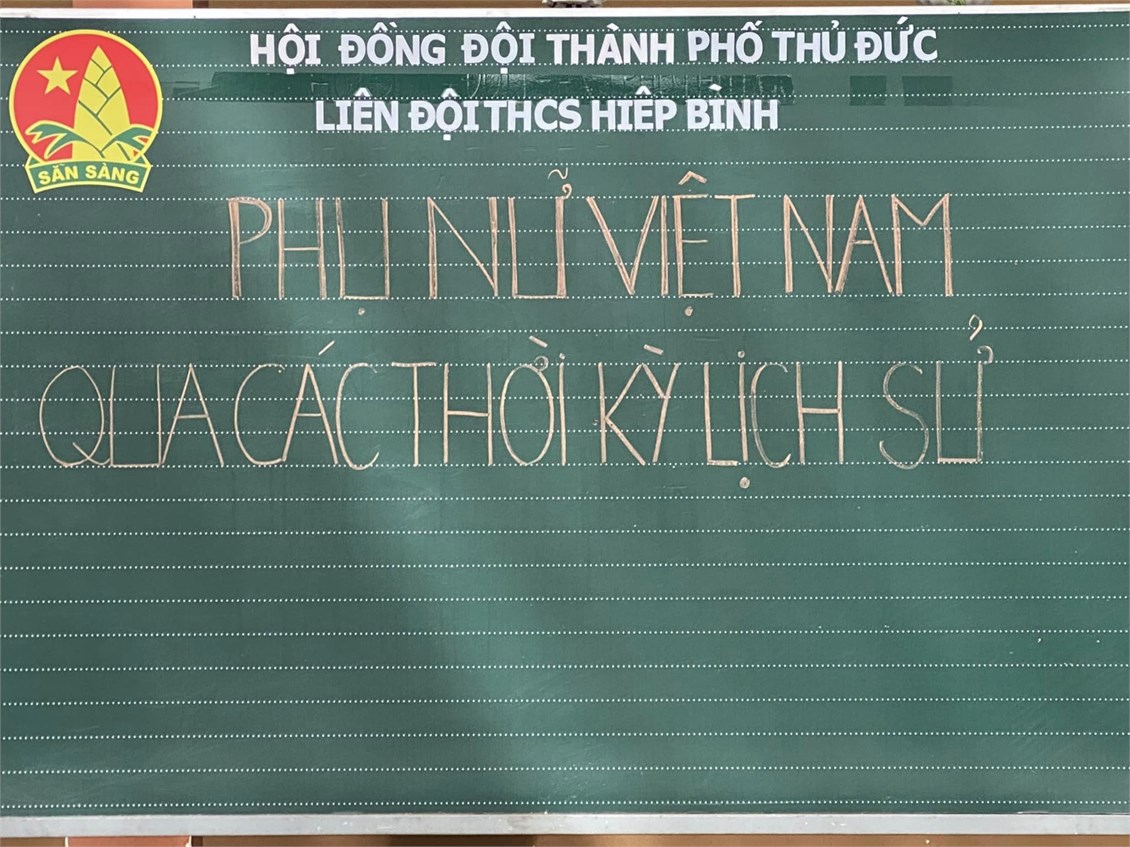 HỘI ĐỒNG ĐỘI THÀNH PHỐ THỦ ĐỨC
LIÊN ĐỘI THCS HIỆP BÌNH
SẴN SÀNG
PHỤ NỮ VIỆT NAM
QUA CÁC THỜI KỲ LỊCH SỬ